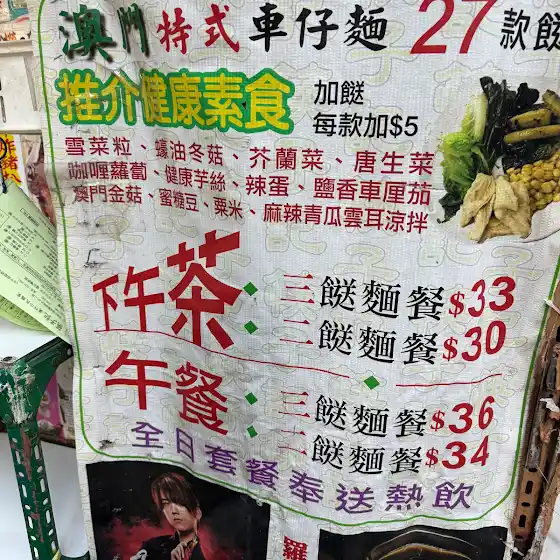 澳門特式車仔麵27款餸
推介健康素食
加餸
每款加$5
雪菜粒、蠔油冬菇、芥蘭菜、唐生菜
咖喱蘿蔔、健康芋絲、辣蛋、鹽香車厘茄
澳門金菇、蜜糖豆、粟米、麻辣青瓜雲耳涼拌
下午茶：三餸麵餐$33
二餸麵餐$30
午餐：三餸麵餐$36
二餸麵餐$34
全日套餐奉送熱飲
羅